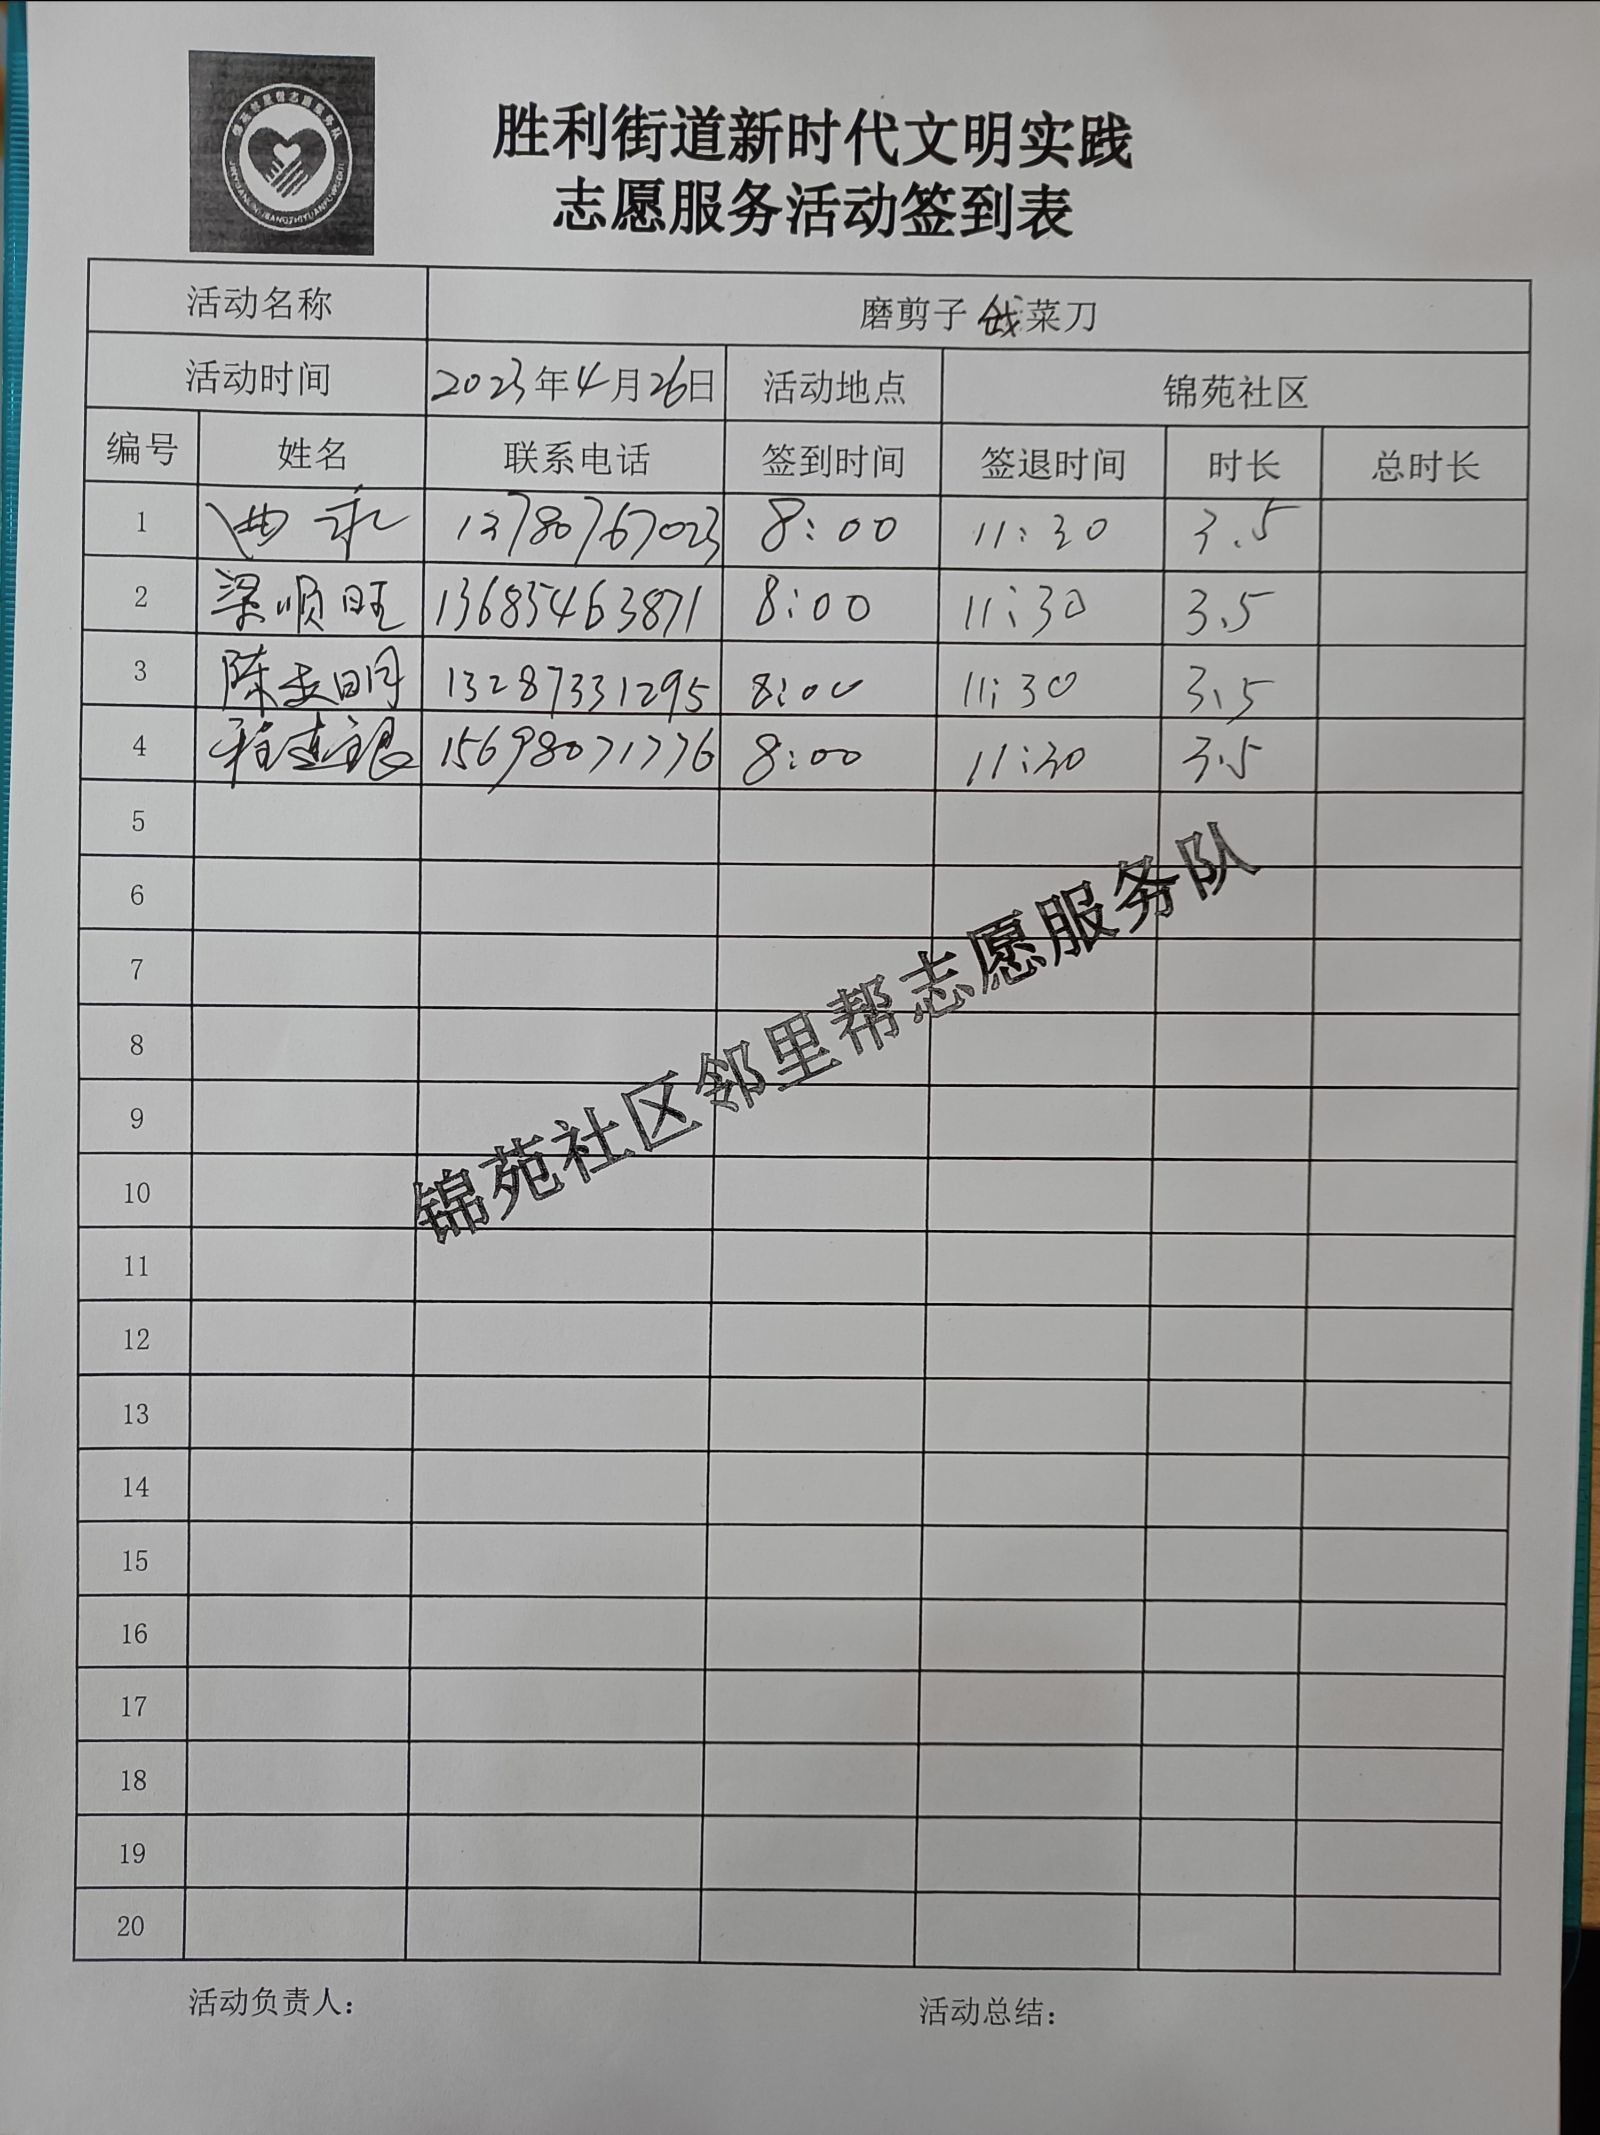 胜利街道新时代文明实践
志愿服务活动签到表
活动名称 磨剪子 戗菜刀
活动时间 2023年4月26日 活动地点 锦苑社区
编号 姓名 联系电话 签到时间 签退时间 时长 总时长
1 13780767023 8:00 11:30 3.5
2 梁顺旺 13685463871 8:00 11:30 3.5
3 陈志明 13287331295 8:00 11:30 3.5
4 15698071776 8:00 11:30 3.5
5
6
7
8
9
10
11
12
13
14
15
16
17
18
19
20
锦苑社区邻里帮志愿服务队
活动负责人： 活动总结：